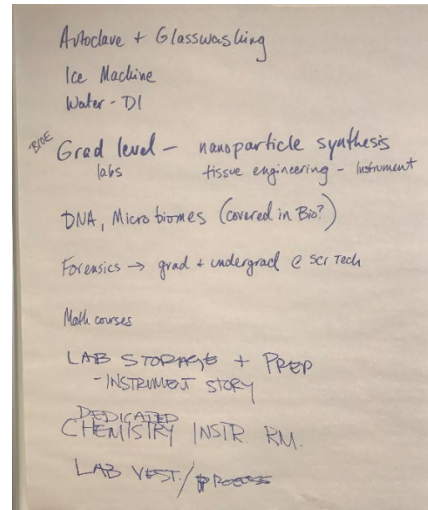 Autoclave + Glasswashing
Ice Machine
Water - DI
BIOE Grad level – nanoparticle synthesis
labs tissue engineering – Instrument
DNA, Microbiomes (covered in Bio?)
Forensics → grad + undergrad @ Sci Tech
Math courses
LAB STORAGE + PREP
- INSTRUMENT STORY
DEDICATED
CHEMISTRY INSTR. RM.
LAB VEST. /